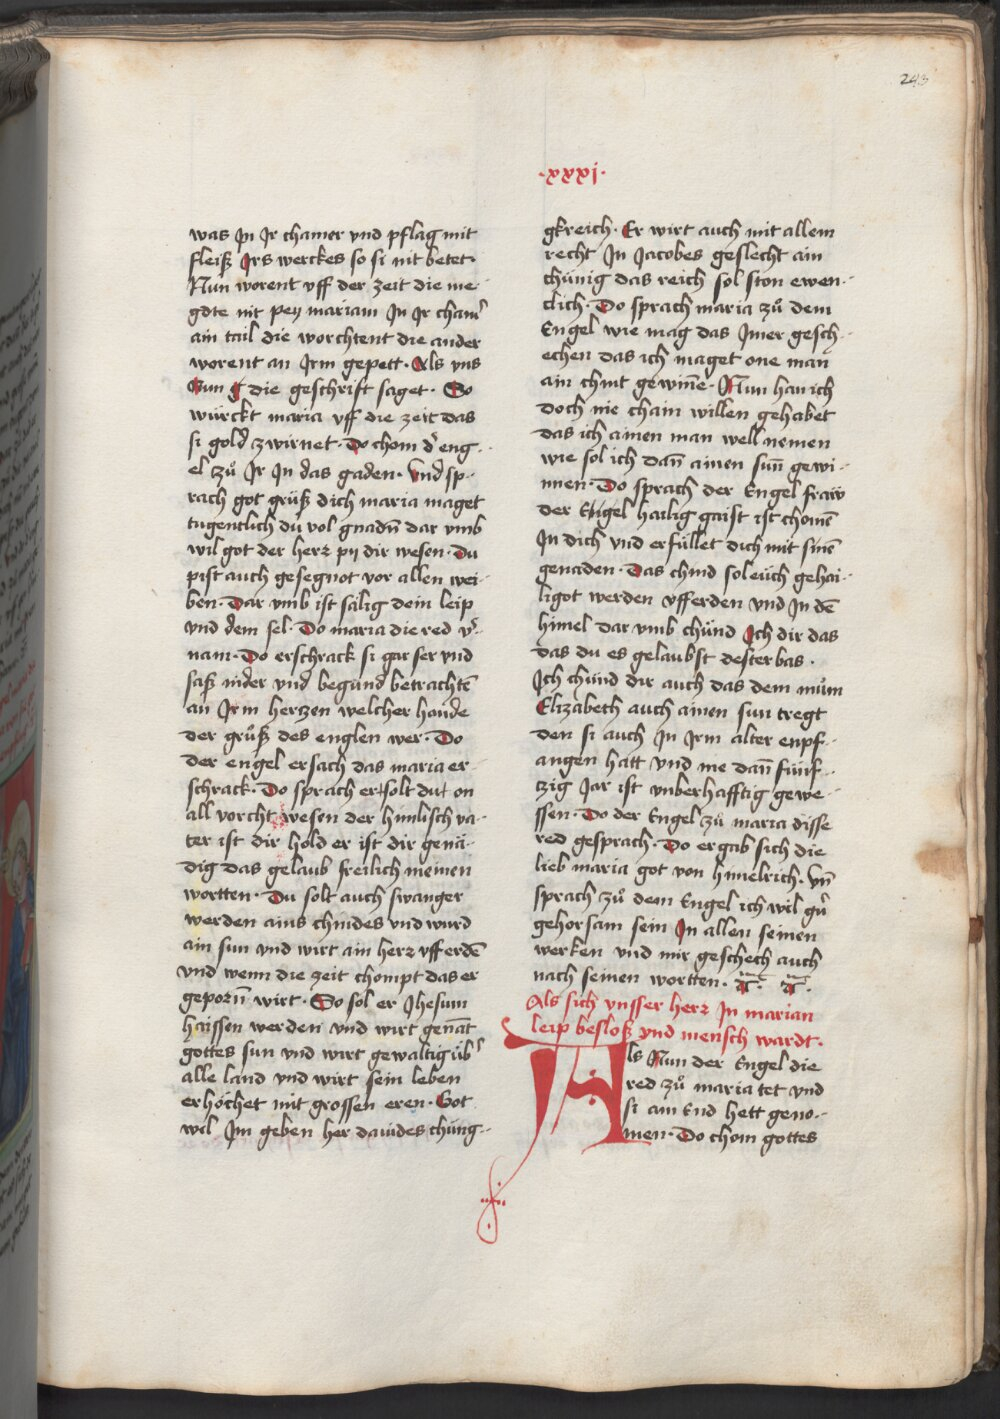 243
·xxxj·
was Jn Jr chamer vnd pflag mit
fleiß Jrs werckes so si nit betet·
Nun worent vff der zeit die me-
gdte nit pey mariam Jn Jr cham̉
ain tail die worchtent die ander
worent an Jrm gepett· Als vns
Nun die geschrift saget· So
würckt maria vff die zeit das
si gold zwirnet· Do chom d̉ eng-
el zů Jr Jn das gaden· Vnd sp-
rach got grüß dich maria maget
tugentlich du vol gnadn̄ dar vmb
wil got der herz py dir wesen· Du
pist auch gesegnot vor allen wei-
ben· Dar vmb ist sälig dein leip
vnd dem sel· Do maria die red v̉-
nam· Do erschrack si gar ser vnd
saß nider vnd begund betrachtē
an Jrm hertzen welcher hande
der grůß des englen wer· Do
der engel ersach das maria er-
schrack· Do sprach er solt du on
all vorcht wesen der himlisch va-
ter ist dir hold er ist dir genä-
dig das gelaub freilich meinen
wortten· Du solt auch swanger
werden ains chindes vnd wurd
ain sun vnd wirt ain herz vff erdē
vnd wenn die zeit chompt das er
geporn̄ wirt· So sol er Jhesum
haissen werden vnd wirt genāt
gottes sun vnd wirt gewaltig üb̉
alle land vnd wirt sein leben
erhöchet mit grossen eren· Got
wil Jm geben her dauides chüng-
gkreich· Er wirt auch mit allem
recht Jn Jacobes geslecht ain
chünig das reich sol ston ewen-
clich· Do sprach maria zů dem
Engel wie mag das Jmer gesch-
echen das ich maget one man
ain chint gewinē· Nun han ich
doch nie chain willen gehabet
das ich ainen man well nemen
wie sol ich dan̄ ainen sun̄ gewi-
nnen· Do sprach der Engel fraw
der Engel hailig gaist ist chomē
Jn dich vnd erfüllet dich mit sinē
genaden· Das chind sol eüch gehai-
ligot werden vff erden vnd Jn dē
himel dar vmb chünd Jch dir das
das du es gelaubst dester bas·
Jch chünd dir auch das dem mům
Elizabeth auch ainen sun tregt
den si auch Jn Jrm alter enpf-
angen hatt vnd me dan̄ fünf-
czig Jar ist vnberhafftig gewe-
ssen· Do der Engel zů maria disse
red gesprach· Do ergab sich die
lieb maria got von himelrich· Vn̄
sprach zů dem Engel ich wil gn̉
gehorsam sein Jn allen seinen
werken vnd mir geschech auch
nach seinen wortten·
Als sich vnsser herz Jn marian
leip besloß vnd mensch wardt·
Als Nun der Engel die
red zů maria tet vnd
si ain End hett geno-
men· Do chom gottes